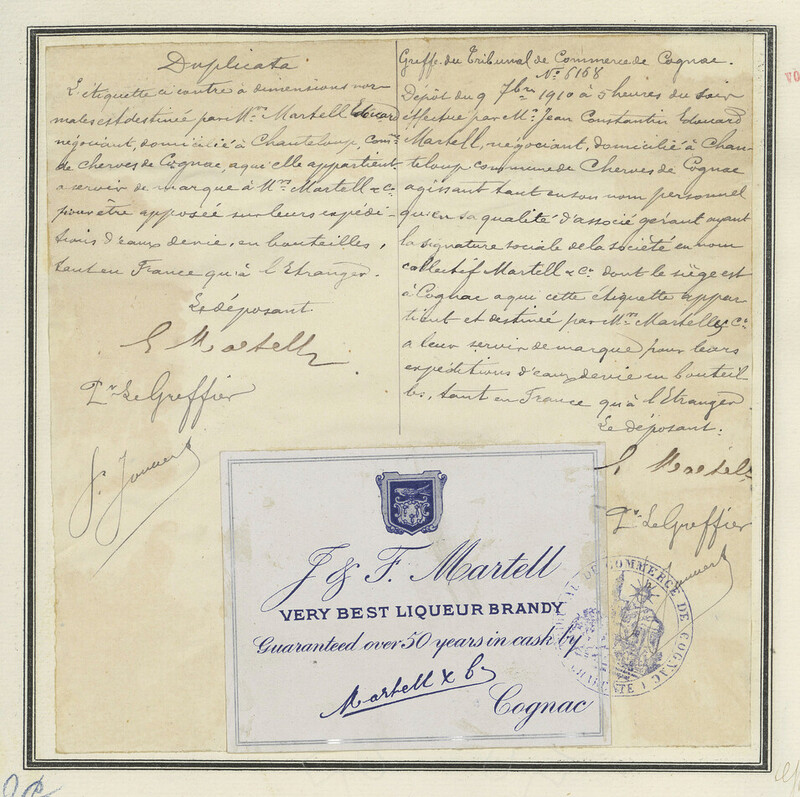 Duplicata
L'étiquette ci contre à dimensions nor
males est destinée par Mr. Martell Edouard
négociant, domicilié à Chanteloup, Comne
de Cherves de Cognac, a qui elle appartient
a servir de marque à Mrs Martell & Co
pour être apposée sur leurs expédi-
tions d'eaux devie, en bouteilles,
tant en France qu'à l'Etranger.
Le déposant
E Martell
Pr Le Greffier
Greffe du Tribunal de Commerce de Cognac.
No 6168
Dépôt du 9 7bre 1910 à 5 heures du soir
effectué par Mr. Jean Constantin Edouard
Martell, négociant, domicilié à Chan-
teloup commune de Cherves de Cognac
agissant tant en son nom personnel
qu'en sa qualité d'associé gérant ayant
la signature sociale de la société en nom
collectif Martell & Co. dont le siège est
à Cognac a qui cette étiquette appar-
tient et destinée par Mrs Martell & Co
a leur servir de marque pour leurs
expéditions d'eaux devie en bouteil
les, tant en France qu'à l'Etranger
Le déposant.
E Martell
Pr Le Greffier
J & F. Martell
VERY BEST LIQUEUR BRANDY
Guaranteed over 50 years in cask by
Martell & Co
Cognac
TRIBUNAL DE COMMERCE DE COGNAC
CHARENTE